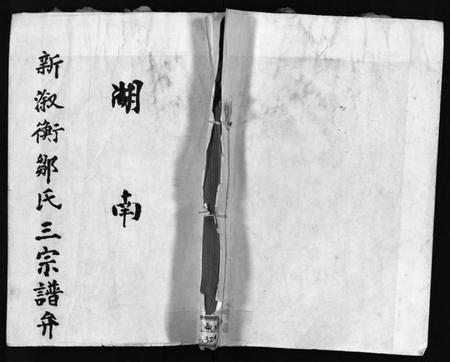 湖南
新溆衡鄒氏三宗譜弁